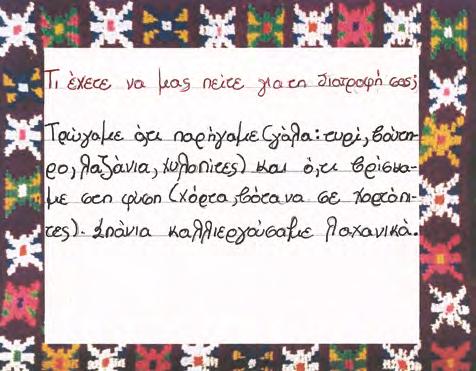 Τι έχετε να μας πείτε για τη διατροφή σας;
Τρώγαμε ό,τι παρήγαμε (γάλα: τυρί, βούτυ-
ρο, λαζάνια, χυλοπίτες) και ό,τι βρίσκα-
με στη φύση (χόρτα, βότανα σε χορτόπι-
τες). Σπάνια καλλιεργούσαμε λαχανικά.